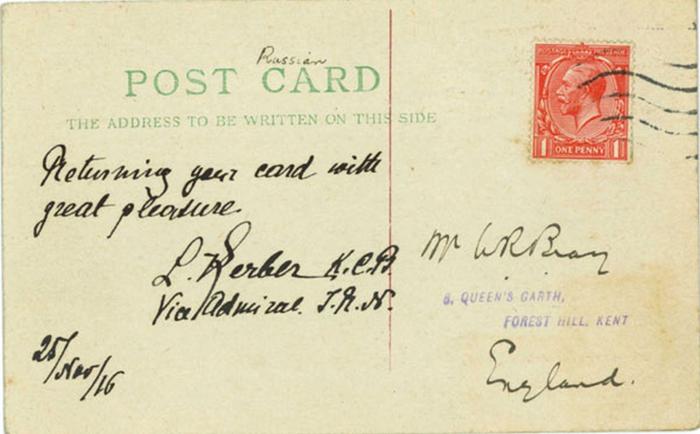 Russian
POST CARD
THE ADDRESS TO BE WRITTEN ON THIS SIDE
POSTAGE REVENUE
1 ONE PENNY 1
Returning your card with
great pleasure
L. Kerber K.C.B
Vice Admiral. I.R.N.
25/Nov/16
Mr W R Bray
8, QUEEN'S GARTH,
FOREST HILL, KENT
England.